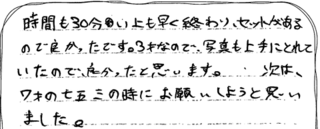 時間も30分以上も早く終わり、セットがある
ので良かったです。3才なので、写真も上手にとれて
いたので、良かったと思います。 次は、
7才の七五三の時にお願いしようと思い
ました。